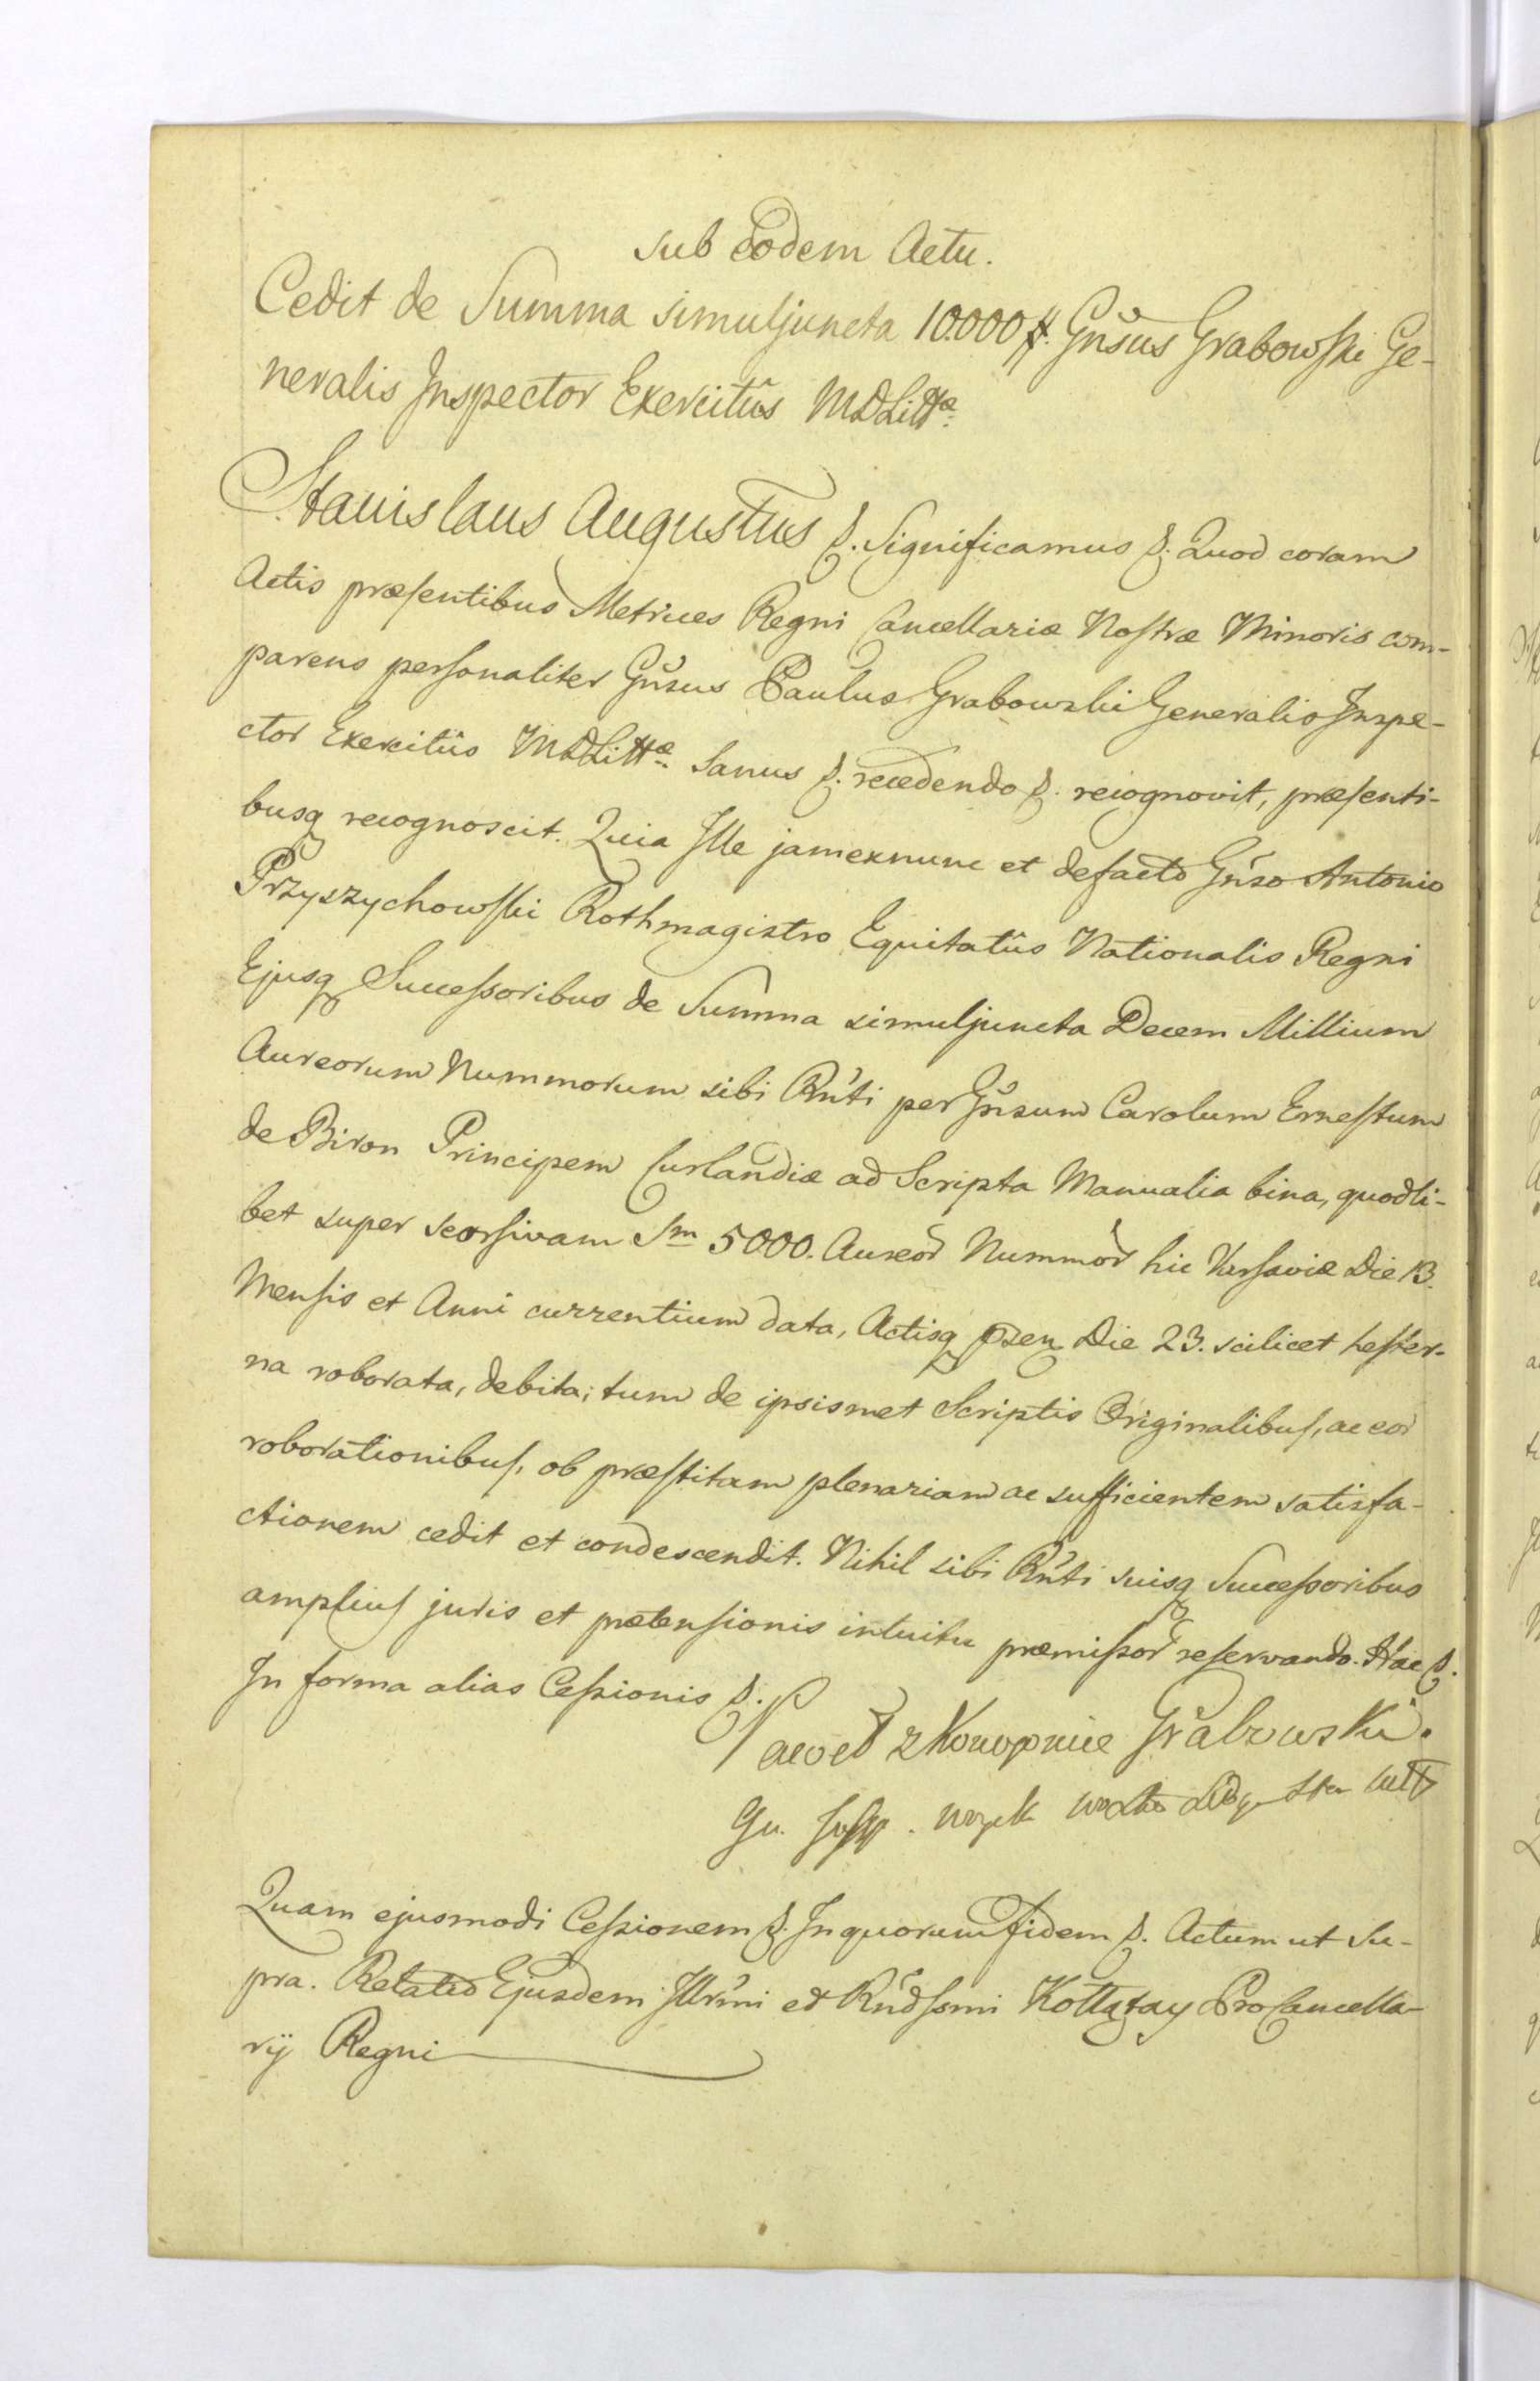 sub Eodem Actu.
Cedit de Summa simuljuncta 10.000 #. Gnsus Grabowski Ge-
neralis Inspector Exercitûs MDLittæ.
Stanislaus Augustus &. Significamus &. Quod coram
Actis præsentibus Metrices Regni Cancellariæ Nostræ Minoris com-
parens personaliter Gnsus Paulus Grabowski Generalis Inspe-
ctor Exercitûs MDLittæ. Sanus &. recedendo &. recognovit, præsenti-
busq recognoscit. Quia Ille jamexnunc et defacto Gnso Antonio
Przyszychowski Rothmagistro Equitatûs Nationalis Regni
Ejusq Successoribus de Summa simuljuncta Decem Millium
Aureorum Nummorum sibi Rńti per Gnsum Carolum Ernestum
de Biron Principem Curlandiæ ad Scripta Manualia bina, quodli-
bet super seorsivam Sm 5000. Aureor Nummor hic Varsaviæ Die 13.
Mensis et Anni currentium data, Actisq pseń Die 23. scilicet hester-
na roborata, debita; tum de ipsismet Scriptis Originalibus, ac eor
roborationibus, ob præstitam plenariam ac sufficientem satisfa-
ctionem cedit et condescendit. Nihil sibi Rńti suisq Successoribus
amplius juris et prætensionis intuitu præmissor reservando. Hac &.
In forma alias Cessionis &.
Paweł z Konopnice Grabowski.
Gn. Insp. woysk
Quam ejusmodi Cessionem &. In quorum Fidem &. Actum ut Su-
pra. Relatio Ejusdem Illrmi et Rńdssmi Kołłątay ProCancella-
rij Regni